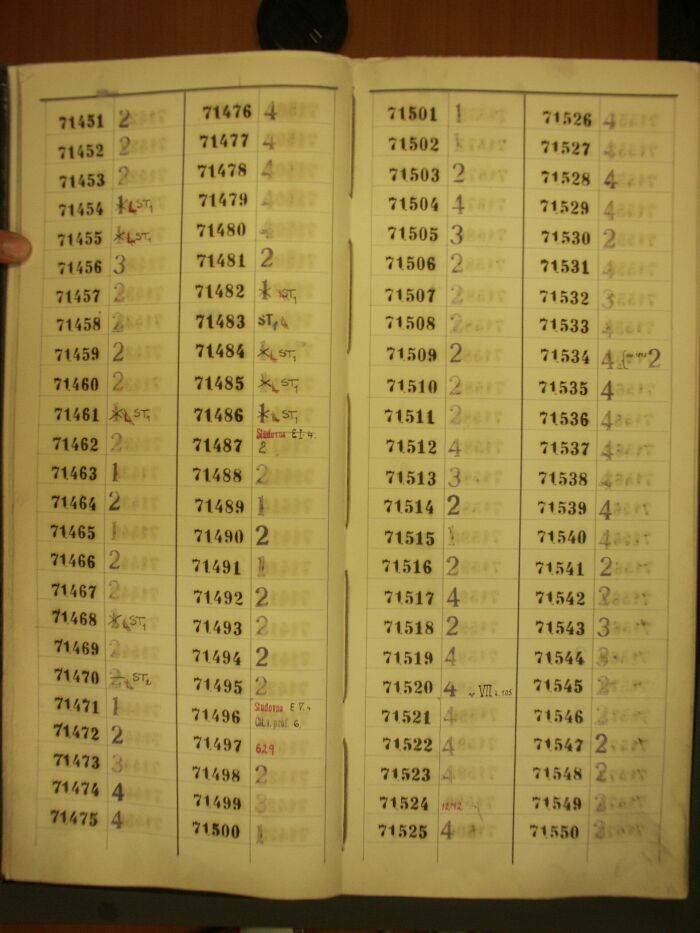 71451 2
71452 2
71453 2
71454 ST1
71455 ST1
71456 3
71457 2
71458 2
71459 2
71460 2
71461 ST1
71462 2
71463 1
71464 2
71465 1
71466 2
71467 2
71468 ST1
71469 2
71470 2 ST2
71471 1
71472 2
71473 3
71474 4
71475 4
71476 4
71477 4
71478 4
71479 4
71480 4
71481 2
71482 1 ST1
71483 ST1
71484 ST1
71485 ST1
71486 1 ST1
71487 Studovna E I 4.
2
71488 2
71489 1
71490 2
71491 1
71492 2
71493 2
71494 2
71495 2
71496 Studovna E V. 4
6.
71497 629
71498 2
71499 3
71500 1
71501 1
71502 1
71503 2
71504 4
71505 3
71506 2
71507 2
71508 2
71509 2
71510 2
71511 2
71512 4
71513 3
71514 2
71515 1
71516 2
71517 4
71518 2
71519 4
71520 4 VII
71521 4
71522 4
71523 4
71524
71525 4
71526 4
71527 4
71528 4
71529 4
71530 2
71531 4
71532 3
71533 4
71534 4 2
71535 4
71536 4
71537 4
71538 4
71539 4
71540 4
71541 2
71542 2
71543 3
71544 3
71545 2
71546 2
71547 2
71548 2
71549 2
71550 2